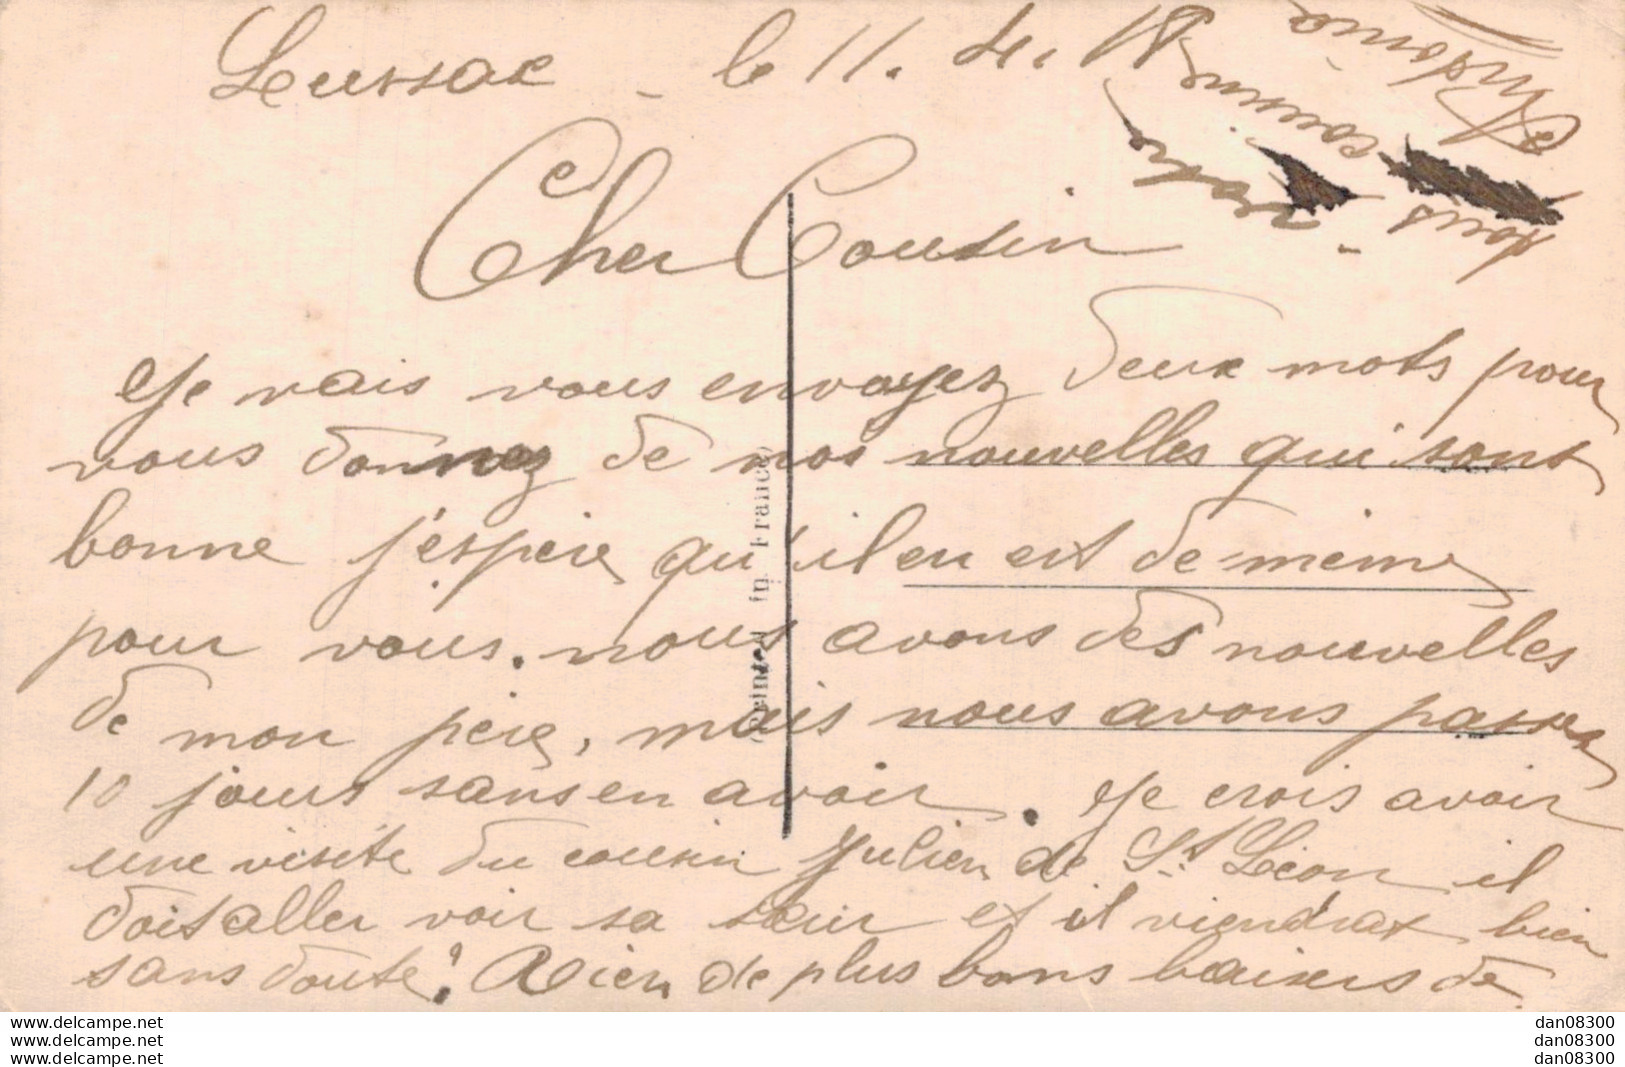 Lussac - le 11. 4. 18
Cher Cousin
Je vais vous envoyez deux mots pour
vous donnez de nos nouvelles qui sont
bonne j'espère qu'il en est de même
pour vous. nous avons des nouvelles
de mon père, mais nous avons passer
10 jours sans en avoir. Je crois avoir
une visite du cousin Julien de St Léon il
doit aller voir sa sœur et il viendrat bien
sans doute. Rien de plus bons baisers de
tous
votre cousine
(Printed in France)
www.delcampe.net
www.delcampe.net
www.delcampe.net
dan08300
dan08300
dan08300